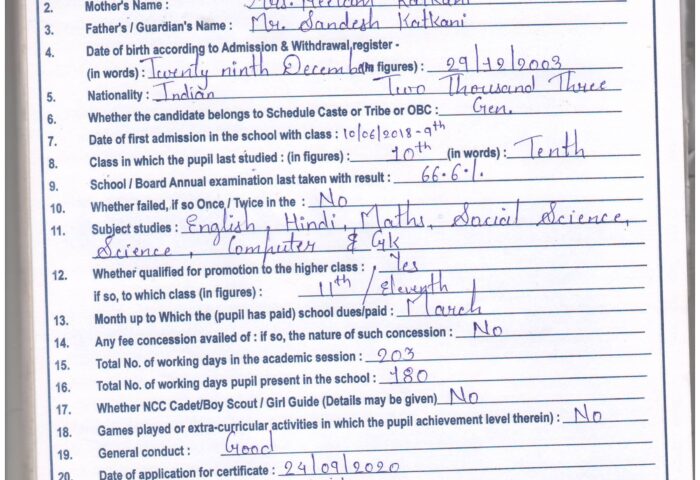 2. Mother's Name : Mrs.
3. Father's / Guardian's Name : Mr. Sandesh Katkani
4. Date of birth according to Admission & Withdrawal register -
(in words) : Twenty ninth December (in figures) : 29/12/2003
5. Nationality : Indian Two Thousand Three
6. Whether the candidate belongs to Schedule Caste or Tribe or OBC : Gen.
7. Date of first admission in the school with class : 10/06/2018-9th
8. Class in which the pupil last studied : (in figures) : 10th (in words) : Tenth
9. School / Board Annual examination last taken with result : 66.6%.
10. Whether failed, if so Once / Twice in the : No
11. Subject studies : English, Hindi, Maths, Social Science,
Science, Computer & GK
12. Whether qualified for promotion to the higher class : Yes
if so, to which class (in figures) : 11th / Eleventh
13. Month up to Which the (pupil has paid) school dues/paid : March
14. Any fee concession availed of : if so, the nature of such concession : No
15. Total No. of working days in the academic session : 203
16. Total No. of working days pupil present in the school : 180
17. Whether NCC Cadet/Boy Scout / Girl Guide (Details may be given) No
18. Games played or extra-curricular activities in which the pupil achievement level therein) : No
19. General conduct : Good
20. Date of application for certificate : 24/09/2020